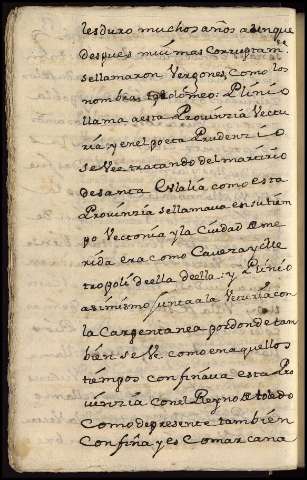 les duro muchos años aunque
despues mui mas corruptamte.
se llamaron Vergones, como los
nombra Ptolomeo: Plinio
llama a esta Provinzia Vectu
ria, y en el poeta Prudenzio
se vee tratando del martirio
de santa Eulalia como esta
Provinzia se llamava en su tiem
po Vectonia y la Ciudad de me
rida era como Caveza y Me
tropoli de ella: y Plinio
asimismo junta a la Veturia con
la Carpentanea por donde tam
bien se Ve como en aquellos
tiempos confinava esta Pro
vinzia con el Reyno de toledo
Como de presente tambien
Confina y es Comarcana